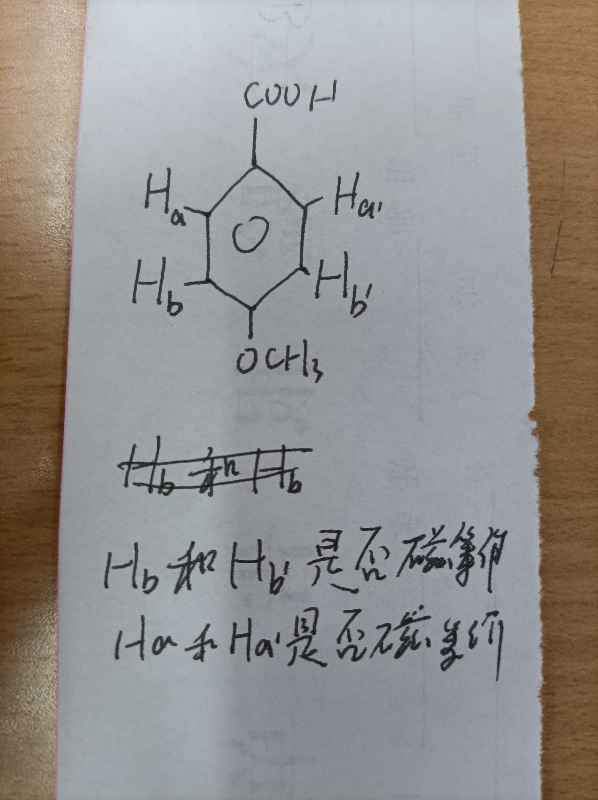 COOH
Ha Ha'
Hb Hb'
OCH3
Hb和Hb'是否磁等价
Ha和Ha'是否磁等价